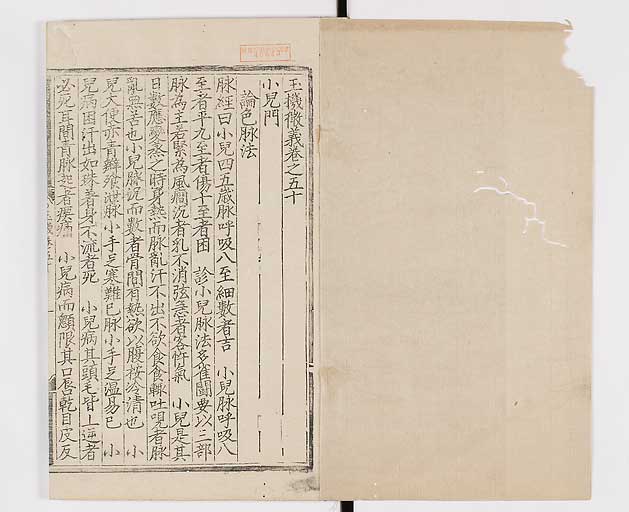 玉機微義卷之五十
小兒門
論色脉法
脉經曰小兒四五歲脉呼吸八至細數者吉 小兒脉呼吸八
至者平九至者傷十至者困 診小兒脉法多雀鬪要以三部
脉為主若緊為風癎沉者乳不消弦急者客忤氣 小兒是其
日數應變蒸之時身熱而脉亂汗不出不欲食食輒吐哯者脉
亂無苦也小兒脉沉而數者骨間有熱欲以腹按冷清也 小
兒大便赤青瓣飱泄脉小手足寒難已脉小手足溫易已 小
兒病困汗出如珠着身不流者死 小兒病其頭毛皆上逆者
必死耳間青脉起者瘈痛 小兒病而顖陷其口唇乾目皮反